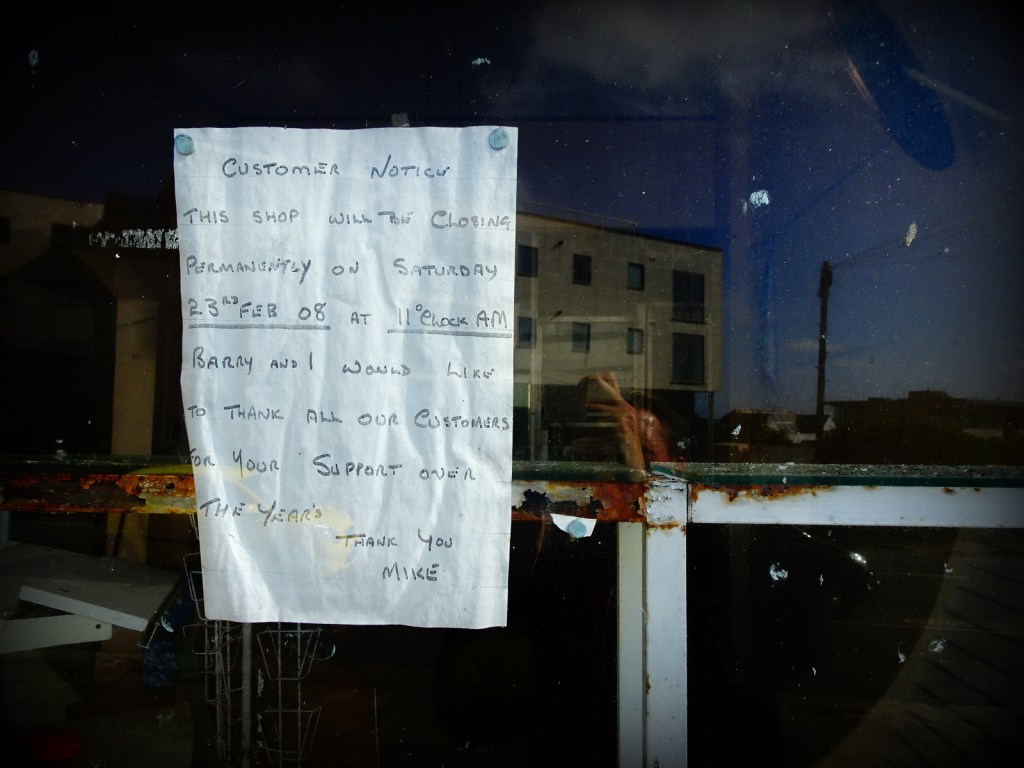 CUSTOMER NOTICE
THIS SHOP WILL BE CLOSING
PERMANENTLY ON SATURDAY
23RD FEB 08 AT 11O'CLOCK AM
BARRY AND I WOULD LIKE
TO THANK ALL OUR CUSTOMERS
FOR YOUR SUPPORT OVER
THE YEARS
THANK YOU
MIKE